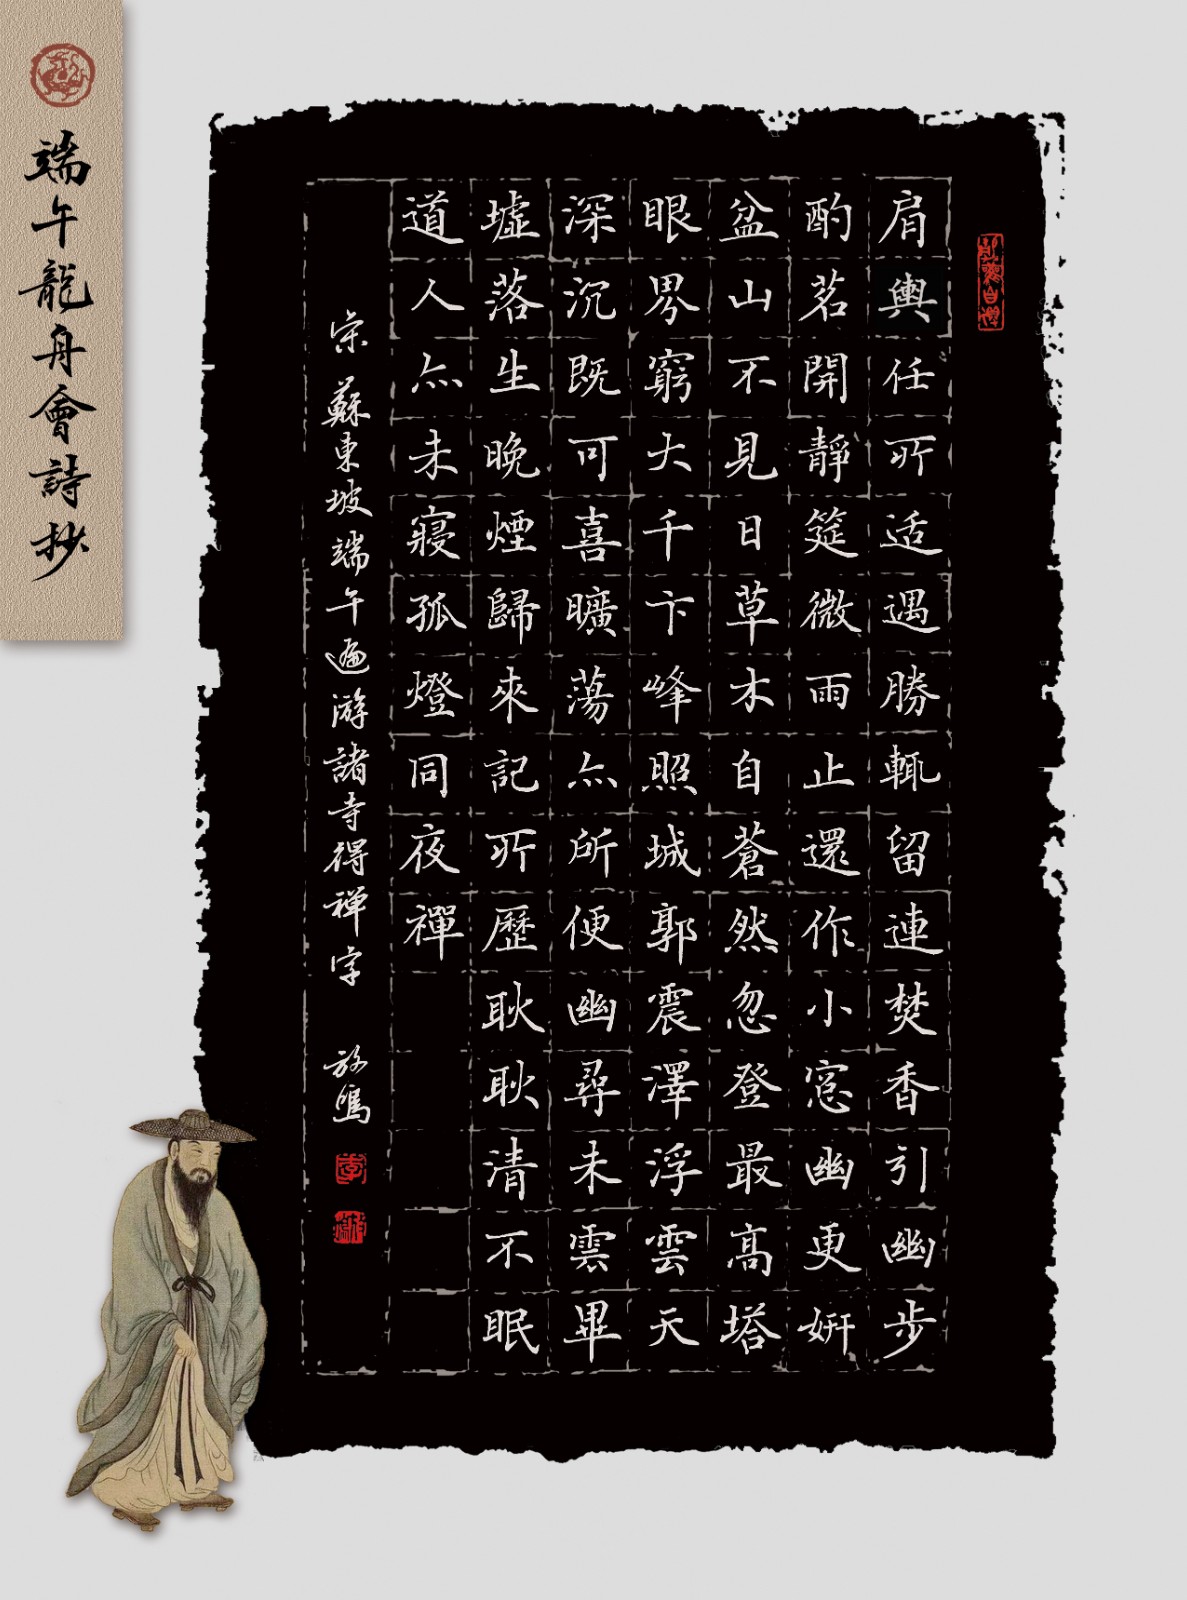 肩輿任所适遇勝輒留連焚香引幽步
酌茗開靜筵微雨止還作小窓幽更妍
盆山不見日草木自蒼然忽登最高塔
眼界窮大千卞峰照城郭震澤浮雲天
深沉既可喜曠蕩亦所便幽尋未雲畢
墟落生晚煙歸來記所歷耿耿清不眠
道人亦未寢孤燈同夜禪
宋 蘇東坡端午遍游諸寺得禅字
端午龍舟會詩抄